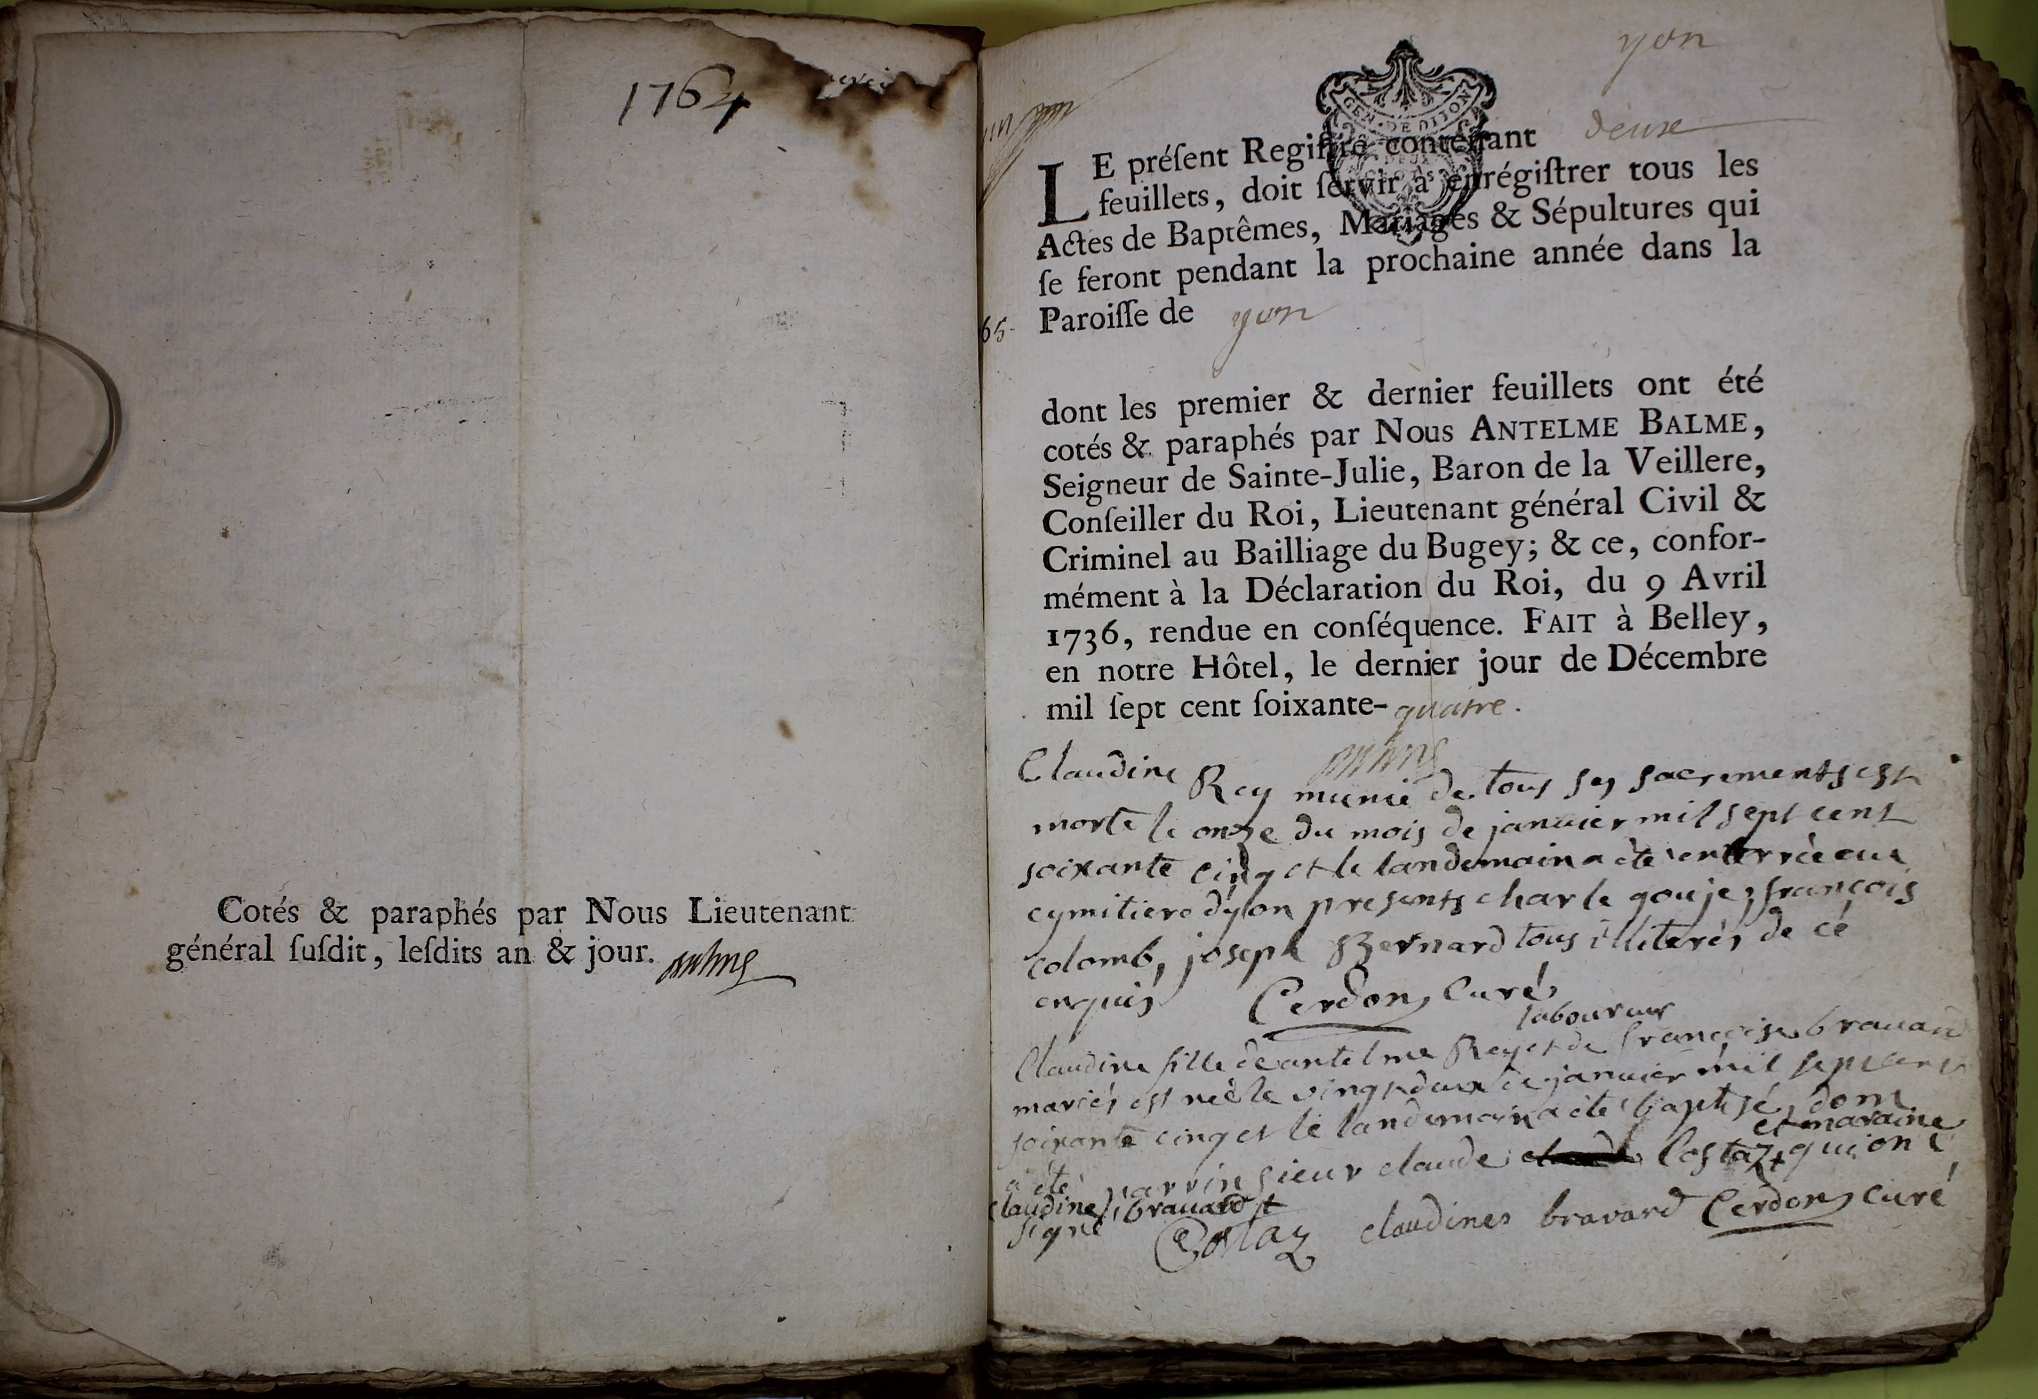 1764
Cotés & paraphés par Nous Lieutenant
général ſuſdit, leſdits an & jour.
yon
GEN · DE DIJON
LE préſent Regiſtre contenant deux
feuillets, doit ſervir à enrégiſtrer tous les
Actes de Baptêmes, Mariages & Sépultures qui
ſe feront pendant la prochaine année dans la
65. Paroiſſe de yon
dont les premier & dernier feuillets ont été
cotés & paraphés par Nous ANTELME BALME,
Seigneur de Sainte-Julie, Baron de la Veillere,
Conſeiller du Roi, Lieutenant général Civil &
Criminel au Bailliage du Bugey; & ce, confor-
mément à la Déclaration du Roi, du 9 Avril
1736, rendue en conſéquence. FAIT à Belley,
en notre Hôtel, le dernier jour de Décembre
mil ſept cent ſoixante-quatre.
Claudine Rey munie de tous ses sacrements est
morte le onze du mois de janvier mil sept cent
soixante cinq et le landemain a été enterrée au
cymitiere dyon presents charle goujes, françois
colomb, joseph Bernard tous illiterés de cé
enquis Cerdon curé
laboureur
Claudine fille de antelme Rey et de françoise bravard
mariés est née le vingt deux de janvier mil sept cent
soixante cinq et le landemain a été baptisé, dom
et maraine
a été parrin sieur claude Costaz + qui ont
claudine bravard +
signé Costaz claudines bravard Cerdon curé